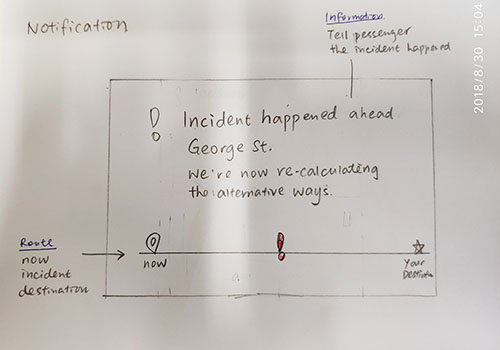 Notification
Information
Tell passenger
the incident happened
2018/8/30 15:04
! Incident happened ahead
George St.
We're now re-calculating
the alternative ways.
Route
now
incident
destination
now
!
Your
Destination